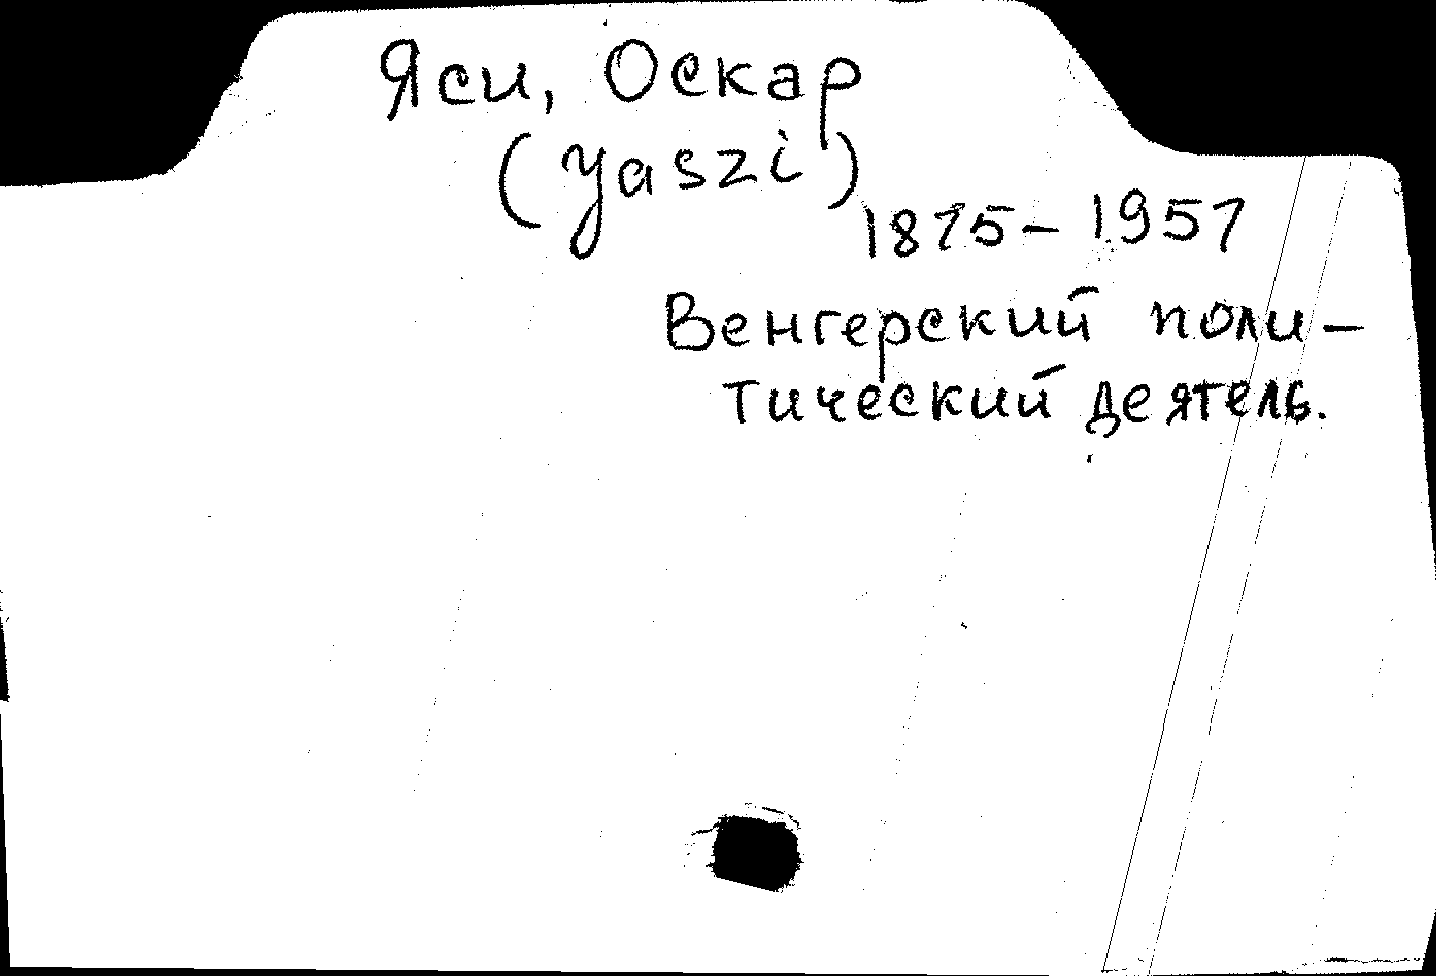 Яси, Оскар
(Yaszi)
1875-1957
Венгерский поли-
тический деятель.